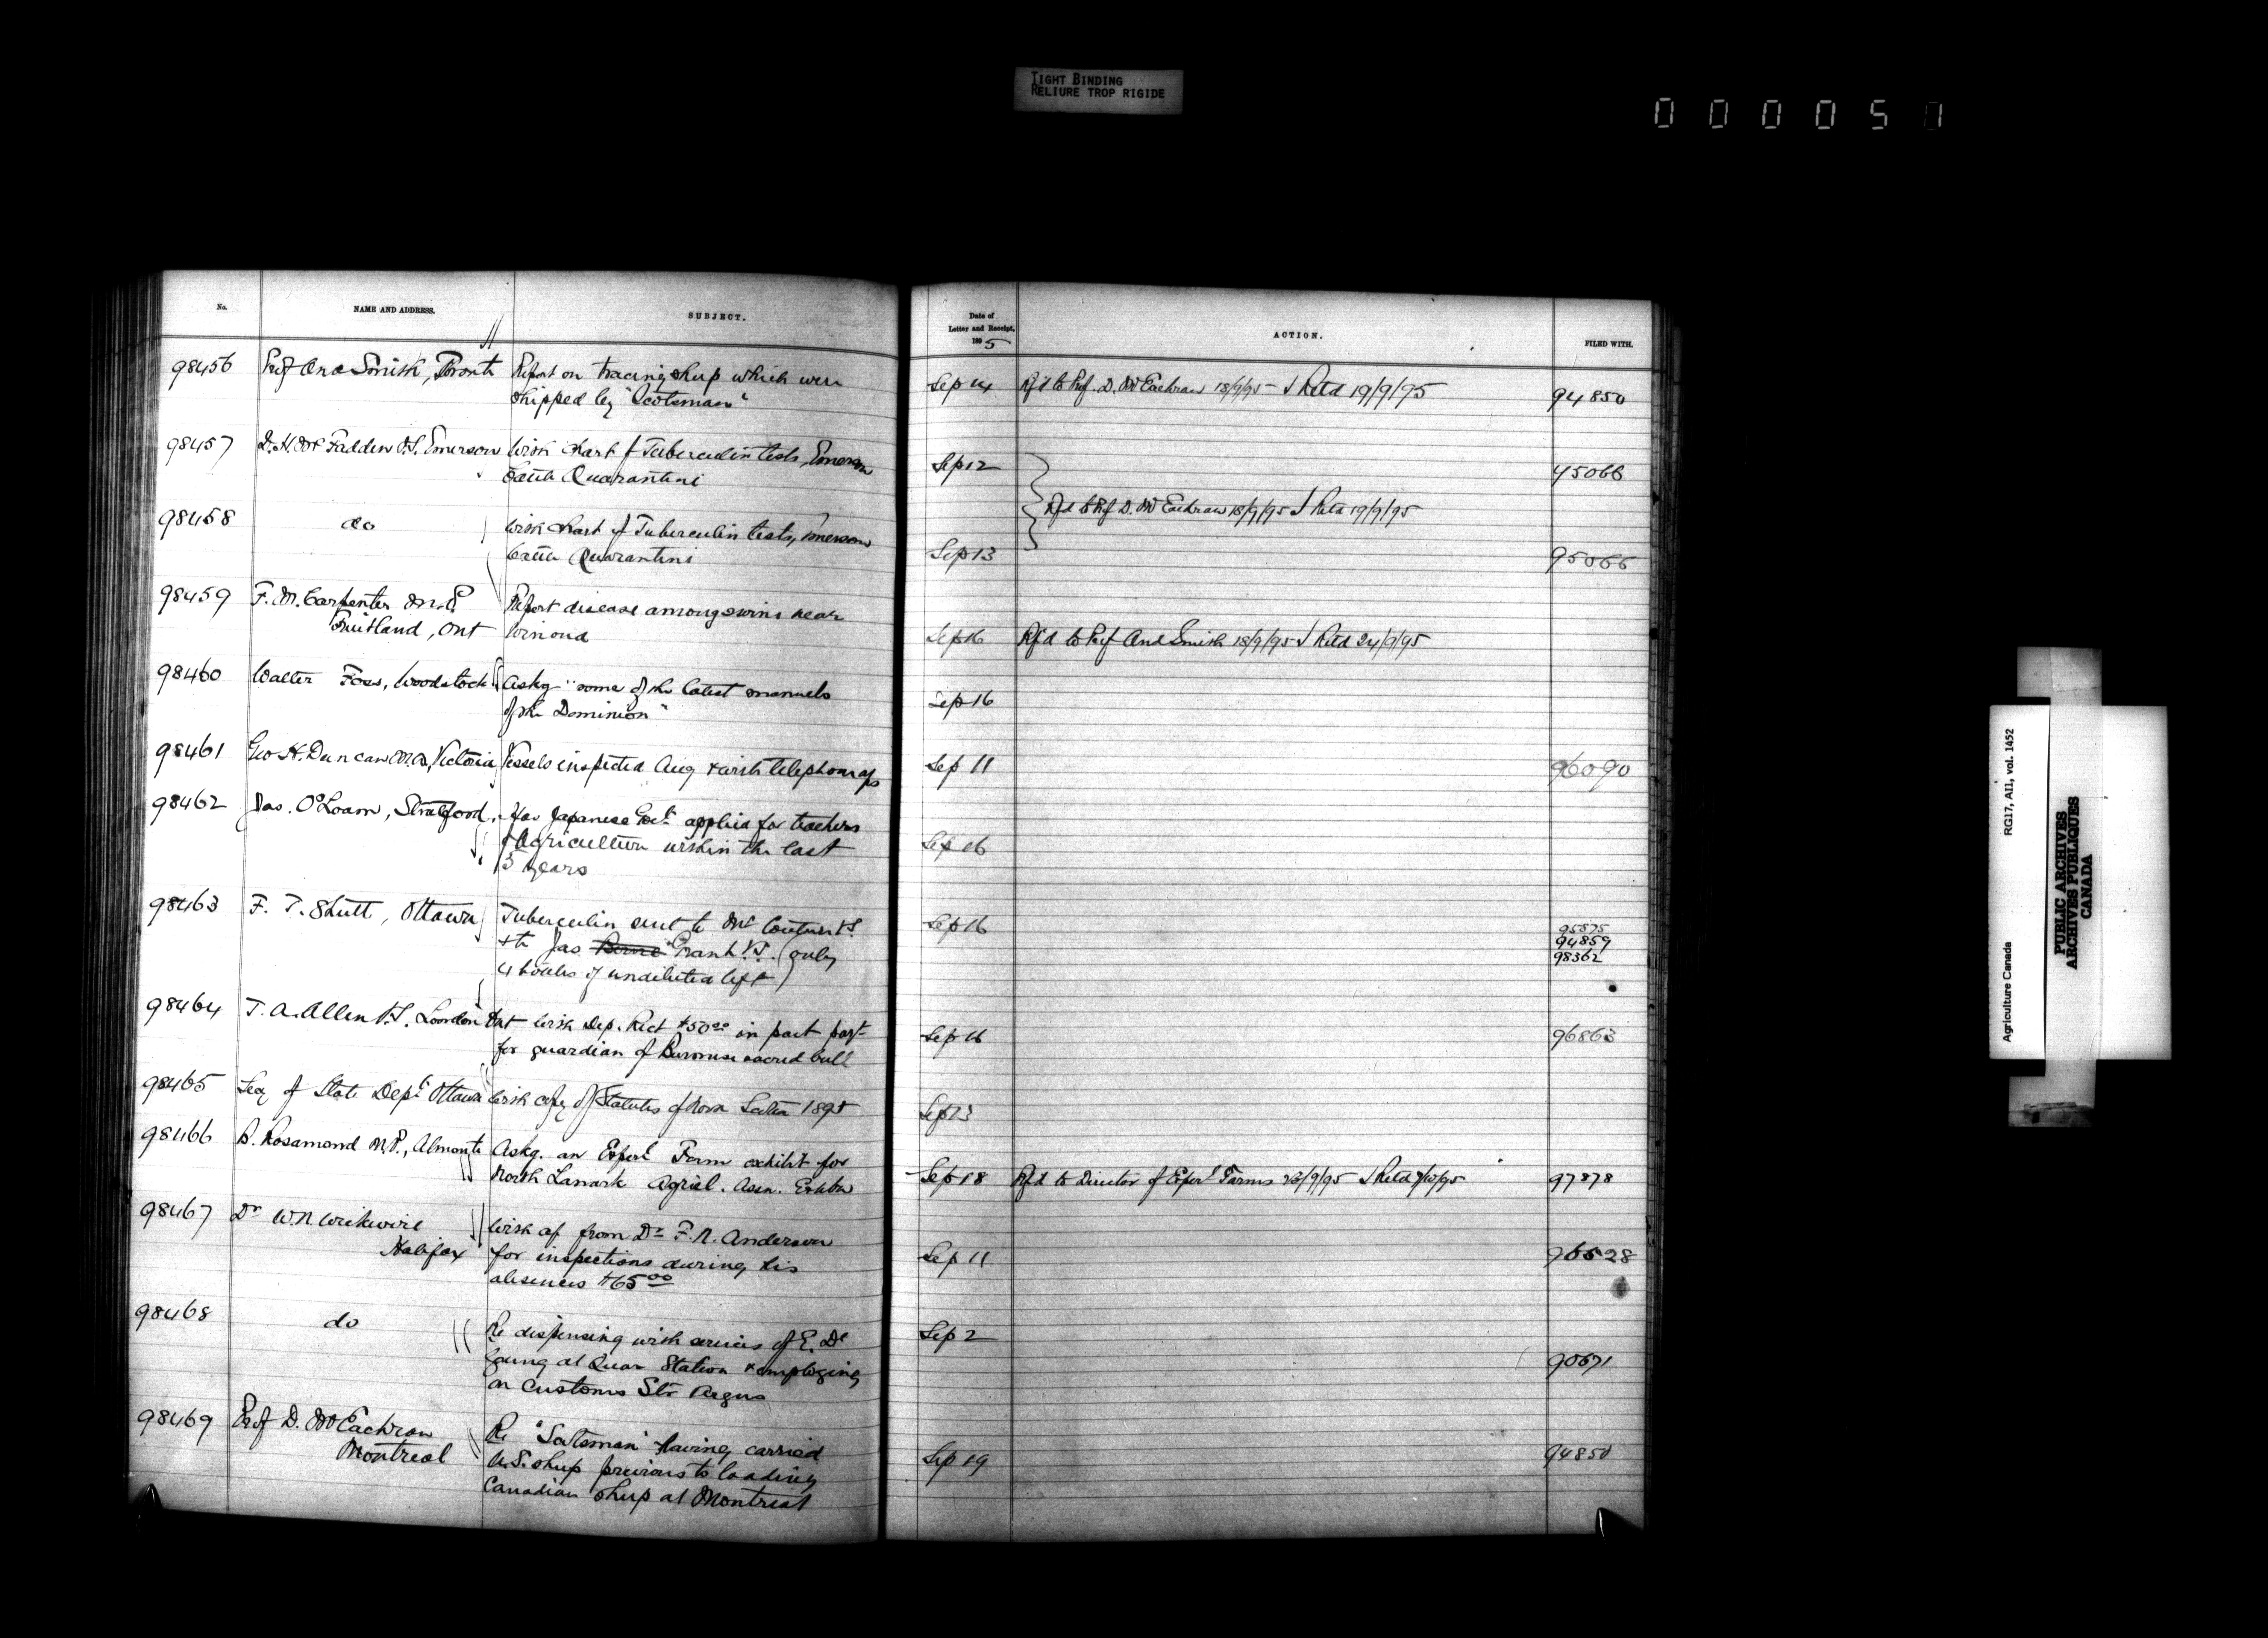 TIGHT BINDING
RELIURE TROP RIGIDE
000051
No.
NAME AND ADDRESS.
SUBJECT.
Date of
Letter and Receipt,
1895
ACTION.
FILED WITH.
98456 Prof And Smith, Toronto Report on tracing sheep which were
shipped by "Scotsman"
Sep 14 Rfd to Prof. D. McEachran 18/9/95 Retd 19/9/95 94850
98457 D. H. McFadden V.S. Emerson With chart of Tuberculin tests, Emerson
Cattle Quarantine
Sep 12 45066
98458 do With chart of Tuberculin tests, Emerson
Cattle Quarantine
Rfd to Prof D. McEachran 18/9/95 Retd 19/9/95
Sep 13 95066
98459 F. M. Carpenter M.P. Report disease among swine near
Fruitland, Ont Winona
Sep 16 Rfd to Prof And Smith 18/9/95 Retd 24/9/95
98460 Walter Foss, Woodstock Askg "some of the latest manuels
of the Dominion"
Sep 16
98461 Geo H. Duncan M.D, Victoria Vessels inspected Aug & with telephone a/c
Sep 11 96090
98462 Jas. O'Loane, Stratford, Has Japanese Govt. applied for teachers
of Agriculture within the last
3 years
Sep 16
98463 F. T. Shutt, Ottawa Tuberculin sent to Mr Couture V.S.
& to Jas Grank V.S. (only
4 bottles of undiluted left)
Sep 16 95575
94859
98362
98464 J. A. Allen V.S. London Ont With Dep. Rect $50.00 in part payt
for guardian of Burmese sacred bull
Sep 16 96863
98465 Sec of State Dept Ottawa With copy of Statutes of Nova Scotia 1895
Sep 13
98466 B. Rosamond M.P., Almonte Askg. an Experl Farm exhibit for
North Lanark Agricl. Assn. Exhbn
Sep 18 Rfd to Director of Experl Farms 23/9/95 Retd 7/10/95 97878
98467 Dr W. N Wickwire With a/c from Dr F. N. Anderson
Halifax for inspections during his
absences $65.00
Sep 11 96528
98468 do Re dispensing with services of E. De
Young at Quar Station & employing
on Customs Str Argus
Sep 2 90671
98469 Prof D. McEachran Re "Scotsman" having carried
Montreal U.S. sheep previous to loading
Canadian sheep at Montreal
Sep 19 94850
Agriculture Canada RG17, AI1, vol. 1452
PUBLIC ARCHIVES
ARCHIVES PUBLIQUES
CANADA